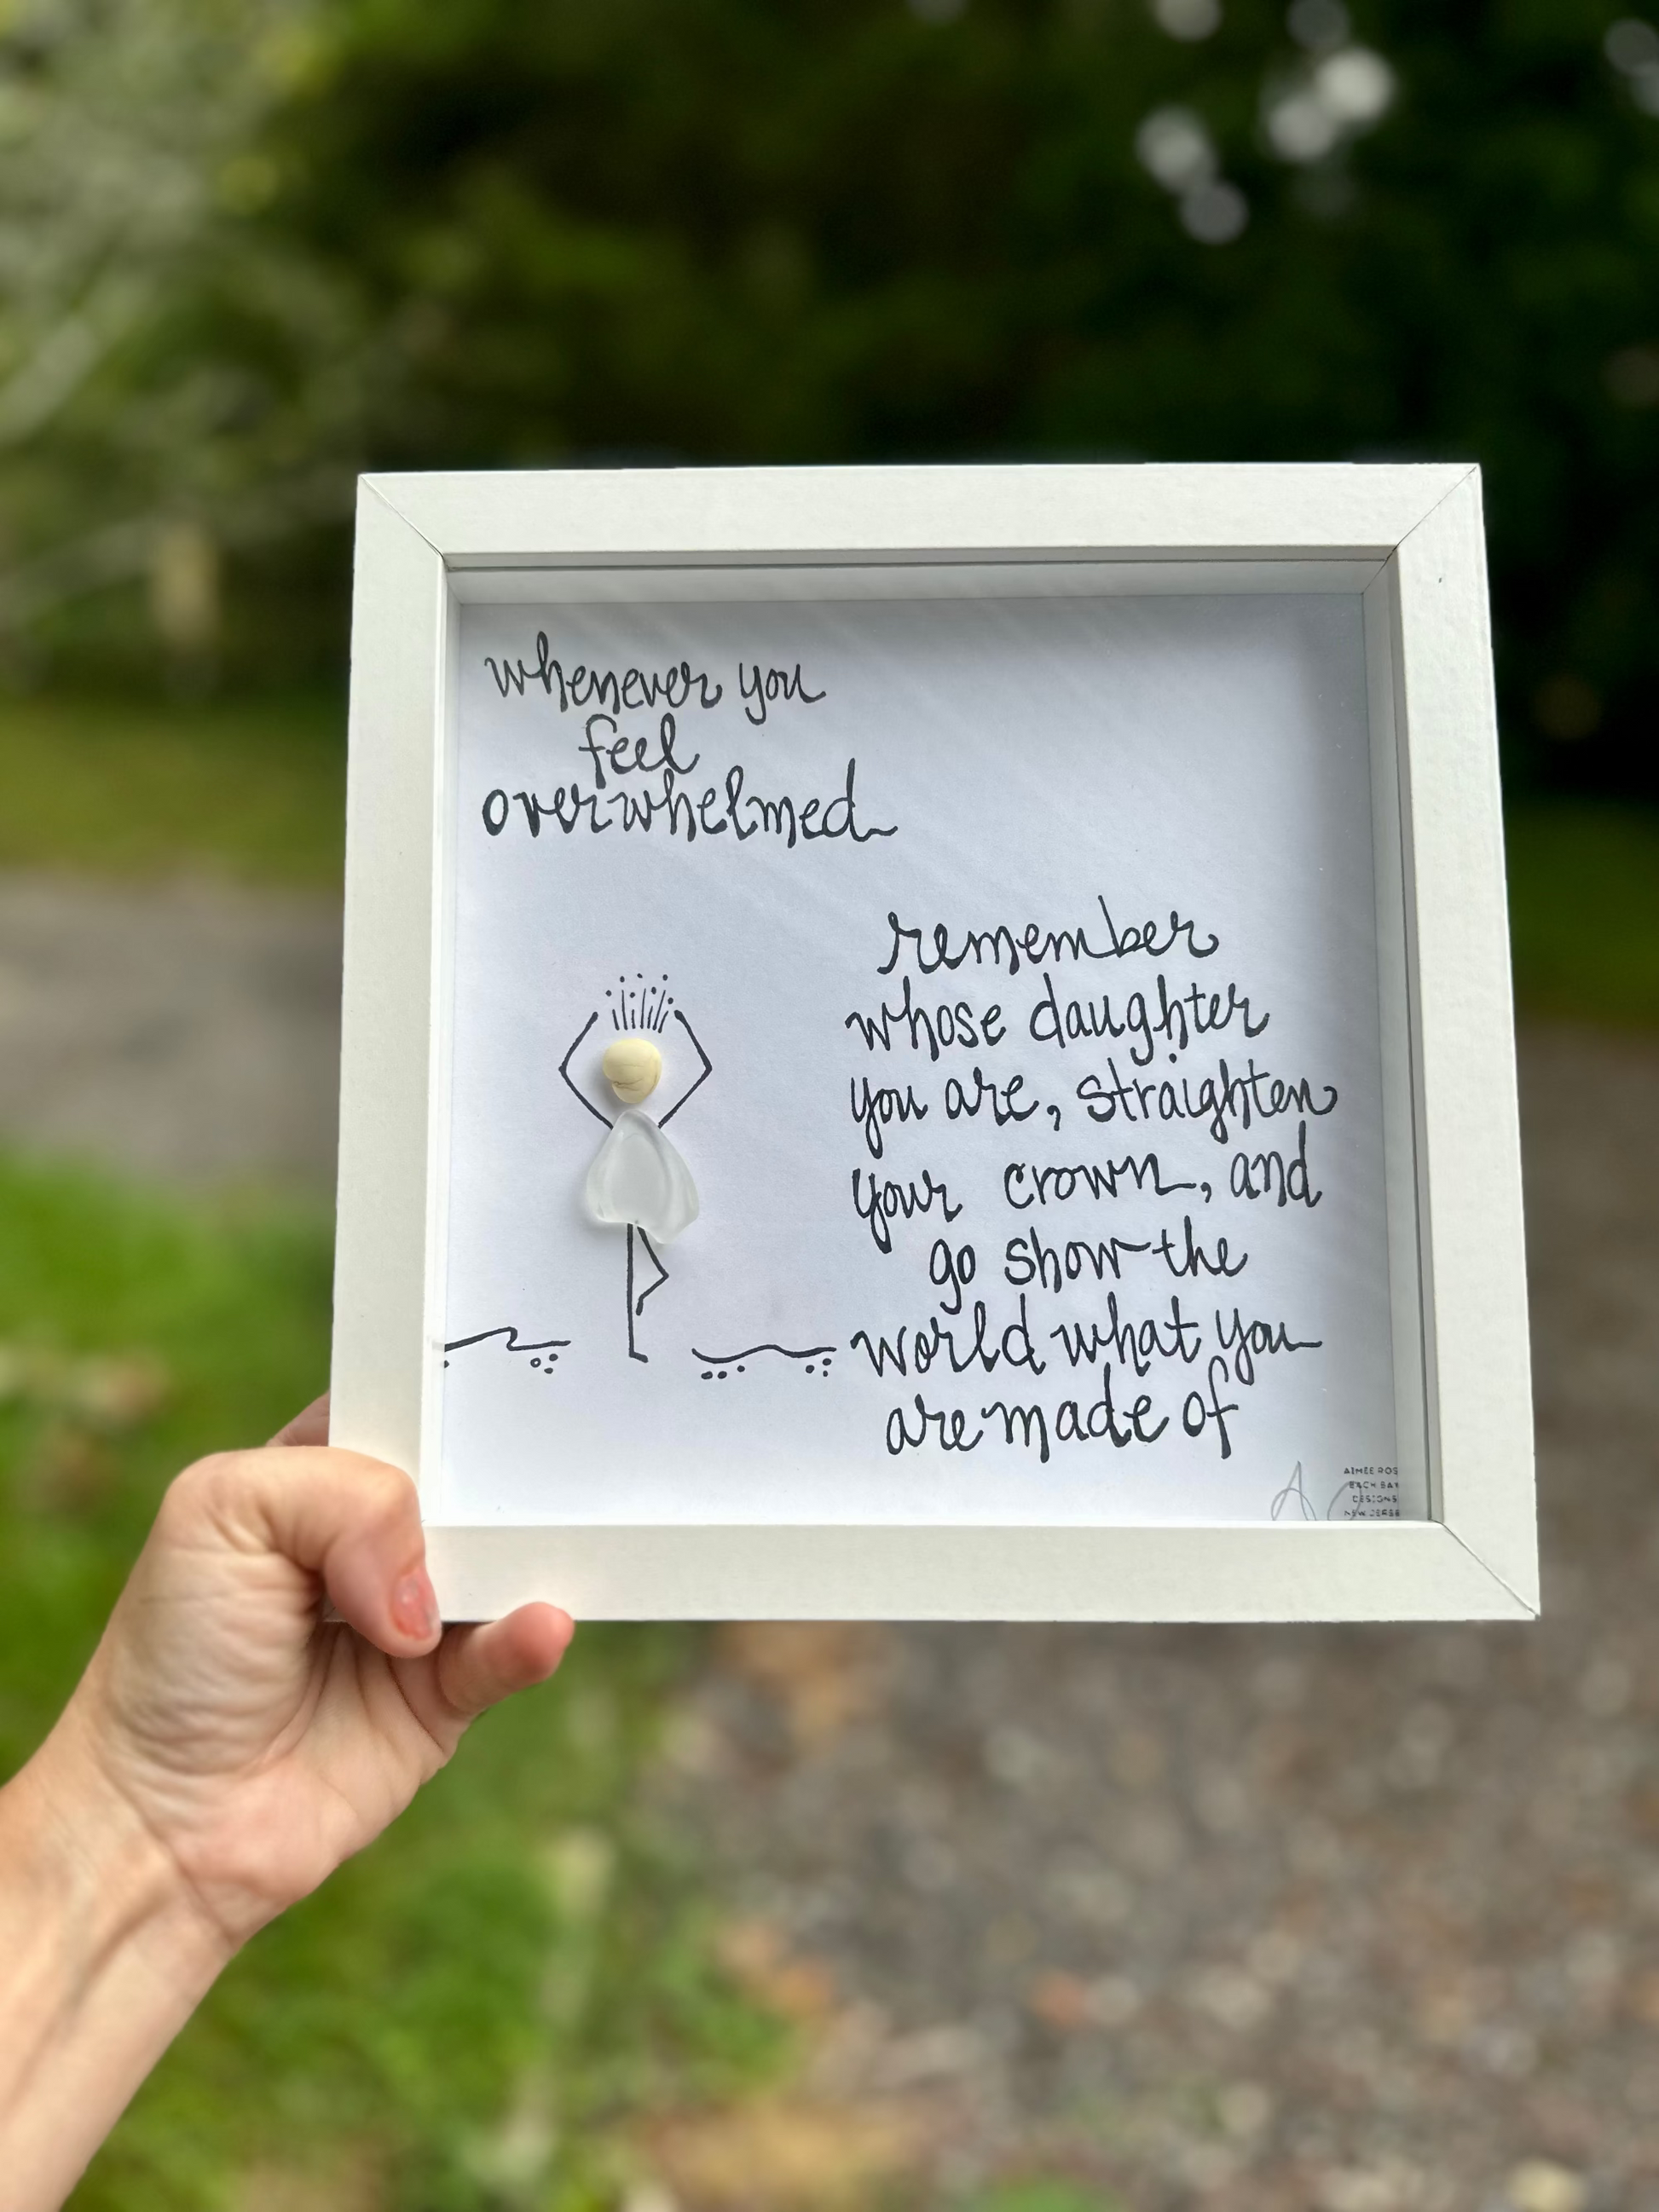 whenever you
feel
overwhelmed
remember
whose daughter
you are, straighten
your crown, and
go show the
world what you
are made of
AIMEE ROS
BACK BAY
DESIGNS
NEW JERSE